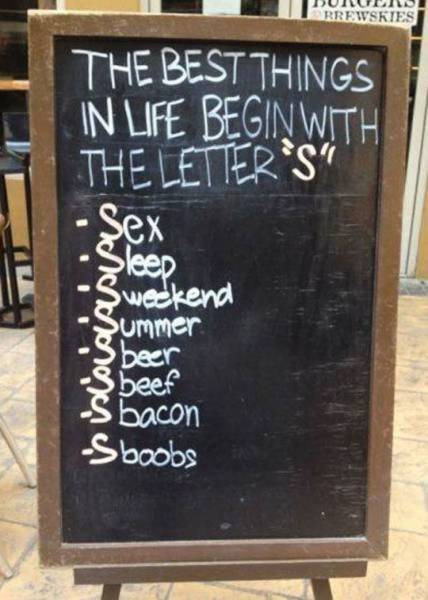 BURGERS
BREWSKIES
THE BEST THINGS
IN LIFE BEGIN WITH
THE LETTER "S"
- Sex
- Sleep
- Sweekend
- Summer
- Sbeer
- Sbeef
- Sbacon
- Sboobs